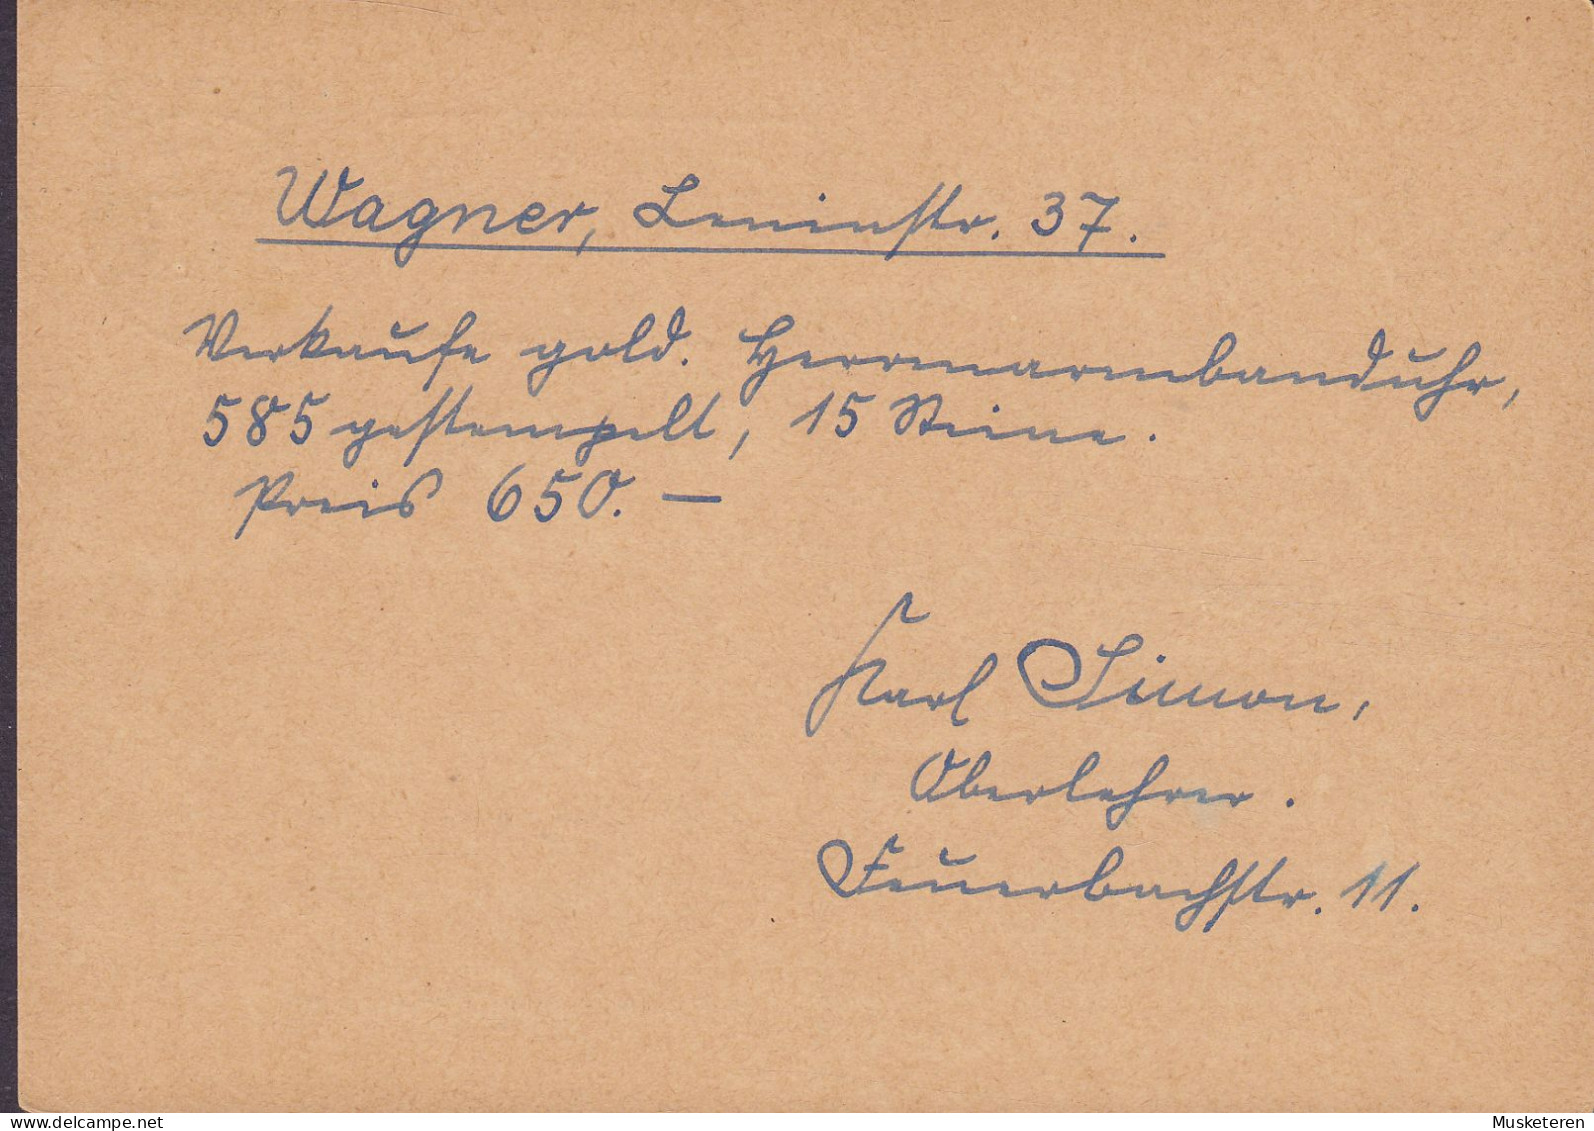 Wagner, Leninstr. 37.
Verkaufe gold. Herrenarmbanduhr,
585 gestempelt, 15 Steine.
Preis 650.—
Karl Simon,
Oberlehrer.
Feuerbachstr. 11.
www.delcampe.net
Musketeren